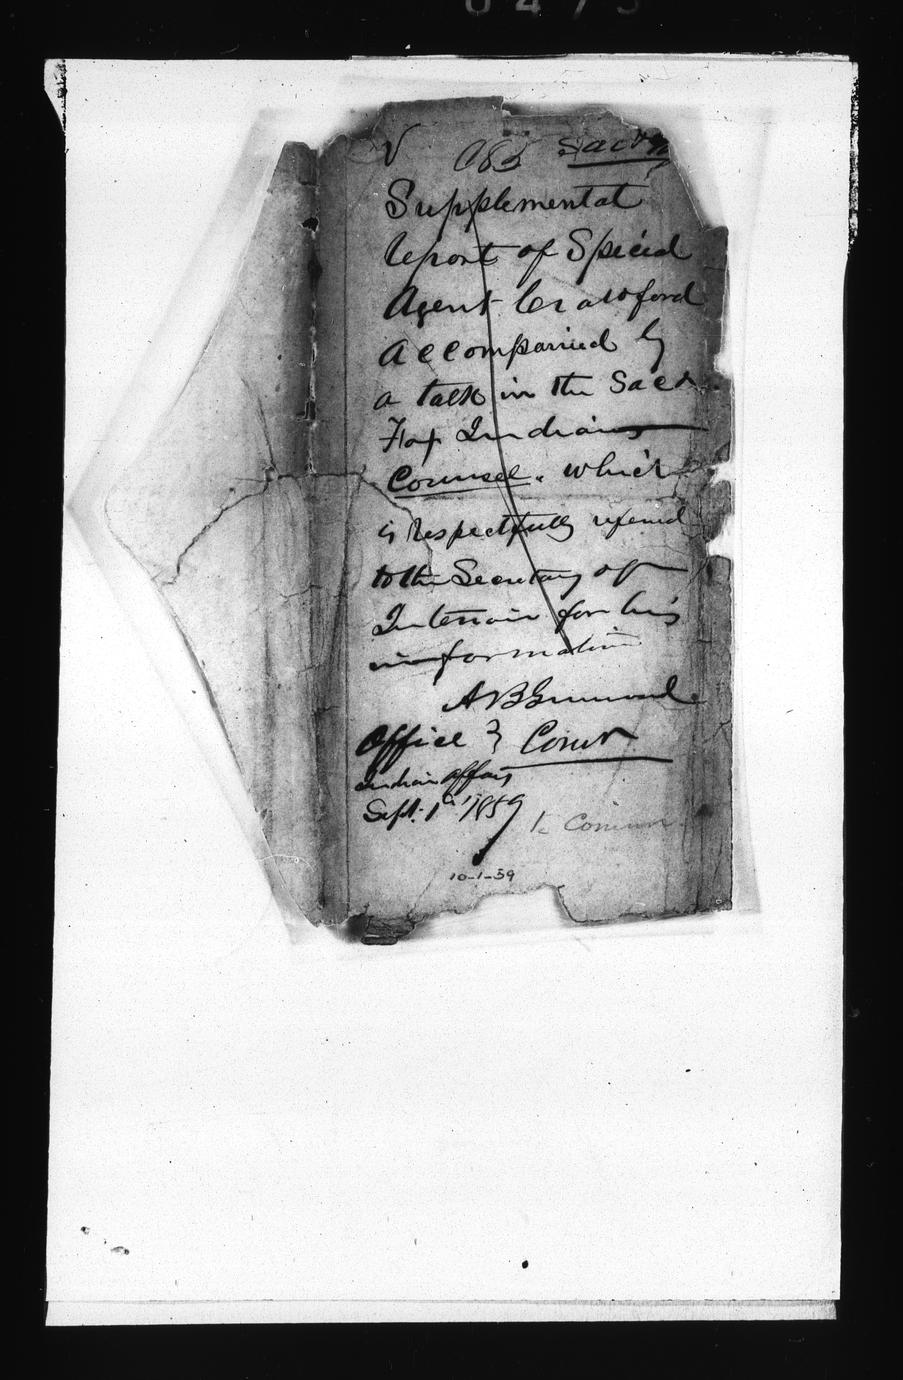 0473
V 085 Sac &
Supplemental
report of Special
Agent Crawford
accompanied by
a talk in the Sac &
Fox Indians
Counsel. which
is Respectfully refered
to the Secretary of
Interior for his
information
A B Greenwood
Office } Comr
Indian Affairs
Sept. 1st 1859
Comr
10-1-59